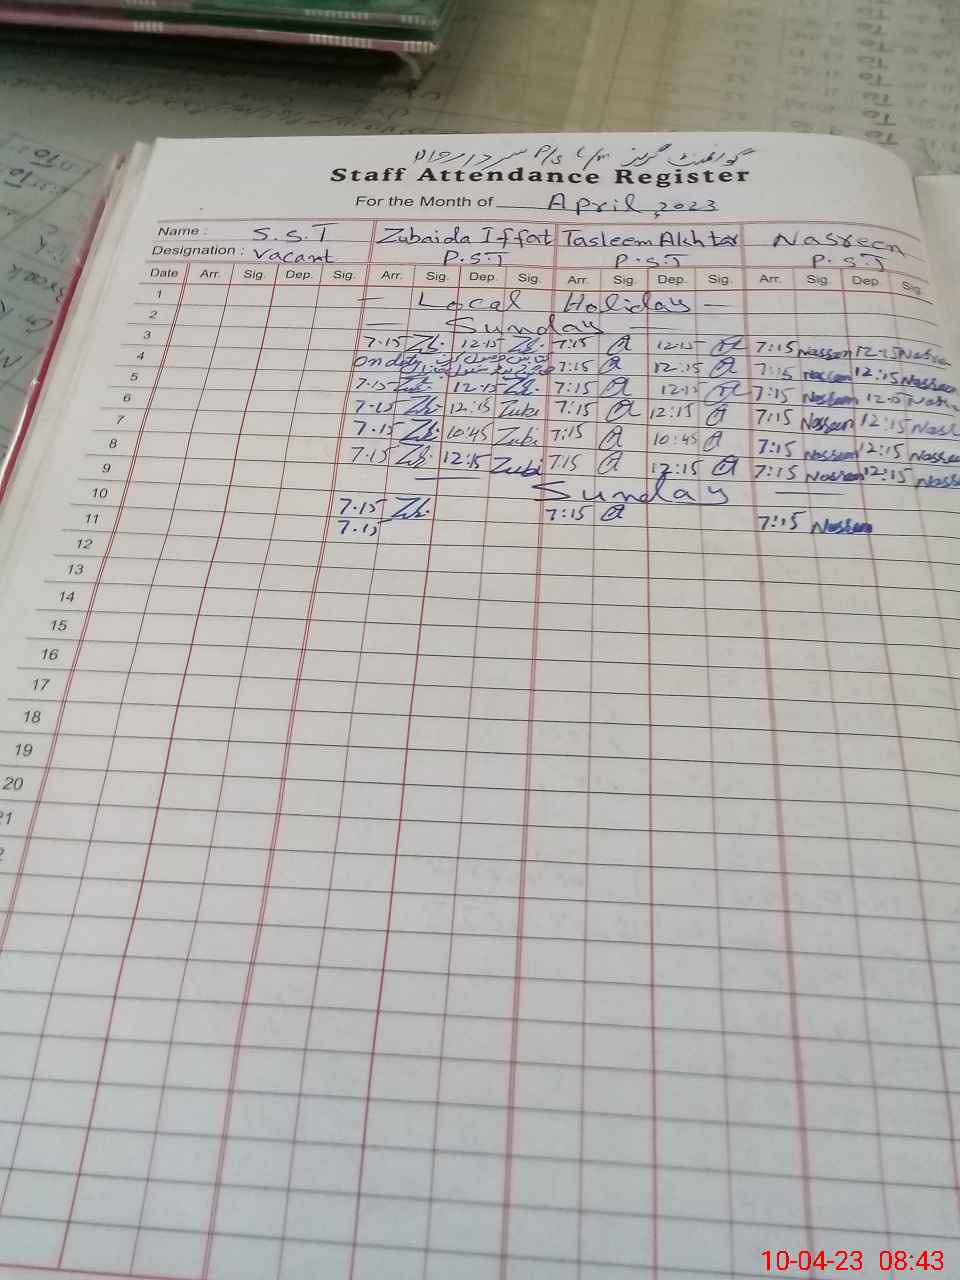 گورنمنٹ گرلز C/m P/s سردارپور
Staff Attendance Register
For the Month of April, 2023
Name : S.S.T Zubaida Iffat Tasleem Akhtar Nasreen
Designation : Vacant P.S.T P.S.T P.S.T
Date Arr. Sig. Dep. Sig. Arr. Sig. Dep. Sig. Arr. Sig. Dep. Sig. Arr. Sig. Dep. Sig.
1 — Local Holiday —
2 — Sunday —
3 7.15 Zb. 12:15 Zb. 7:15 12:15 7:15 Nasreen 12:15 Nasreen
4 On duty 7:15 12:15 7:15 Nasreen 12:15 Nasreen
5 7.15 Zb. 12:15 Zb. 7:15 12:15 7:15 Nasreen 12:15 Nasreen
6 7.15 Zb. 12:15 Zubi 7:15 12:15 7:15 Nasreen 12:15 Nasr
7 7.15 Zb. 10:45 Zubi 7:15 10:45 7:15 Nasreen 12:15 Nasreen
8 7.15 Zb. 12:15 Zubi 7:15 12:15 7:15 Nasreen 12:15 Nasreen
9 — Sunday —
10 7.15 Zb. 7:15 7:15 Nasreen
11 7.15
12
13
14
15
16
17
18
19
20
21
10-04-23 08:43